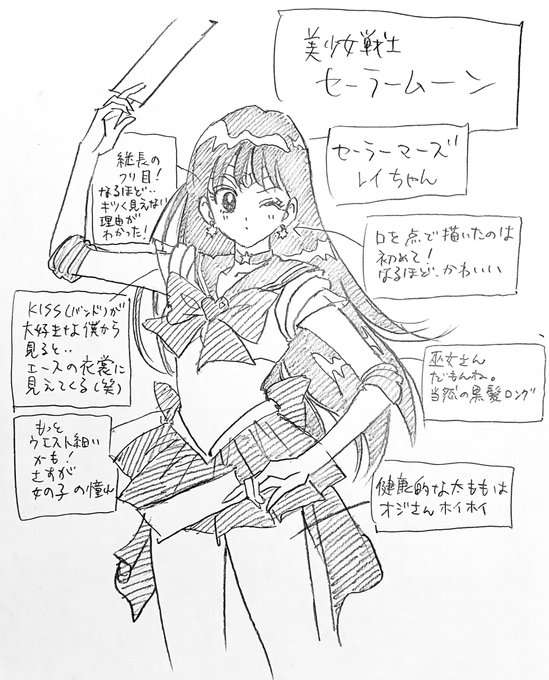 美少女戦士
セーラームーン
セーラーマーズ
レイちゃん
縦長の
ツリ目!
なるほど‥
キツく見えない
理由が
わかった!
口を点で描いたのは
初めて!
なるほど、かわいい
KISS(バンド)が
大好きな僕から
見ると‥
エースの衣裳に
見えてくる(笑)
巫女さん
だもんね。
当然の黒髪ロング
もっと
ウエスト細い
かも!
さすが
女の子の憧れ
健康的な太ももは
オジさんホイホイ